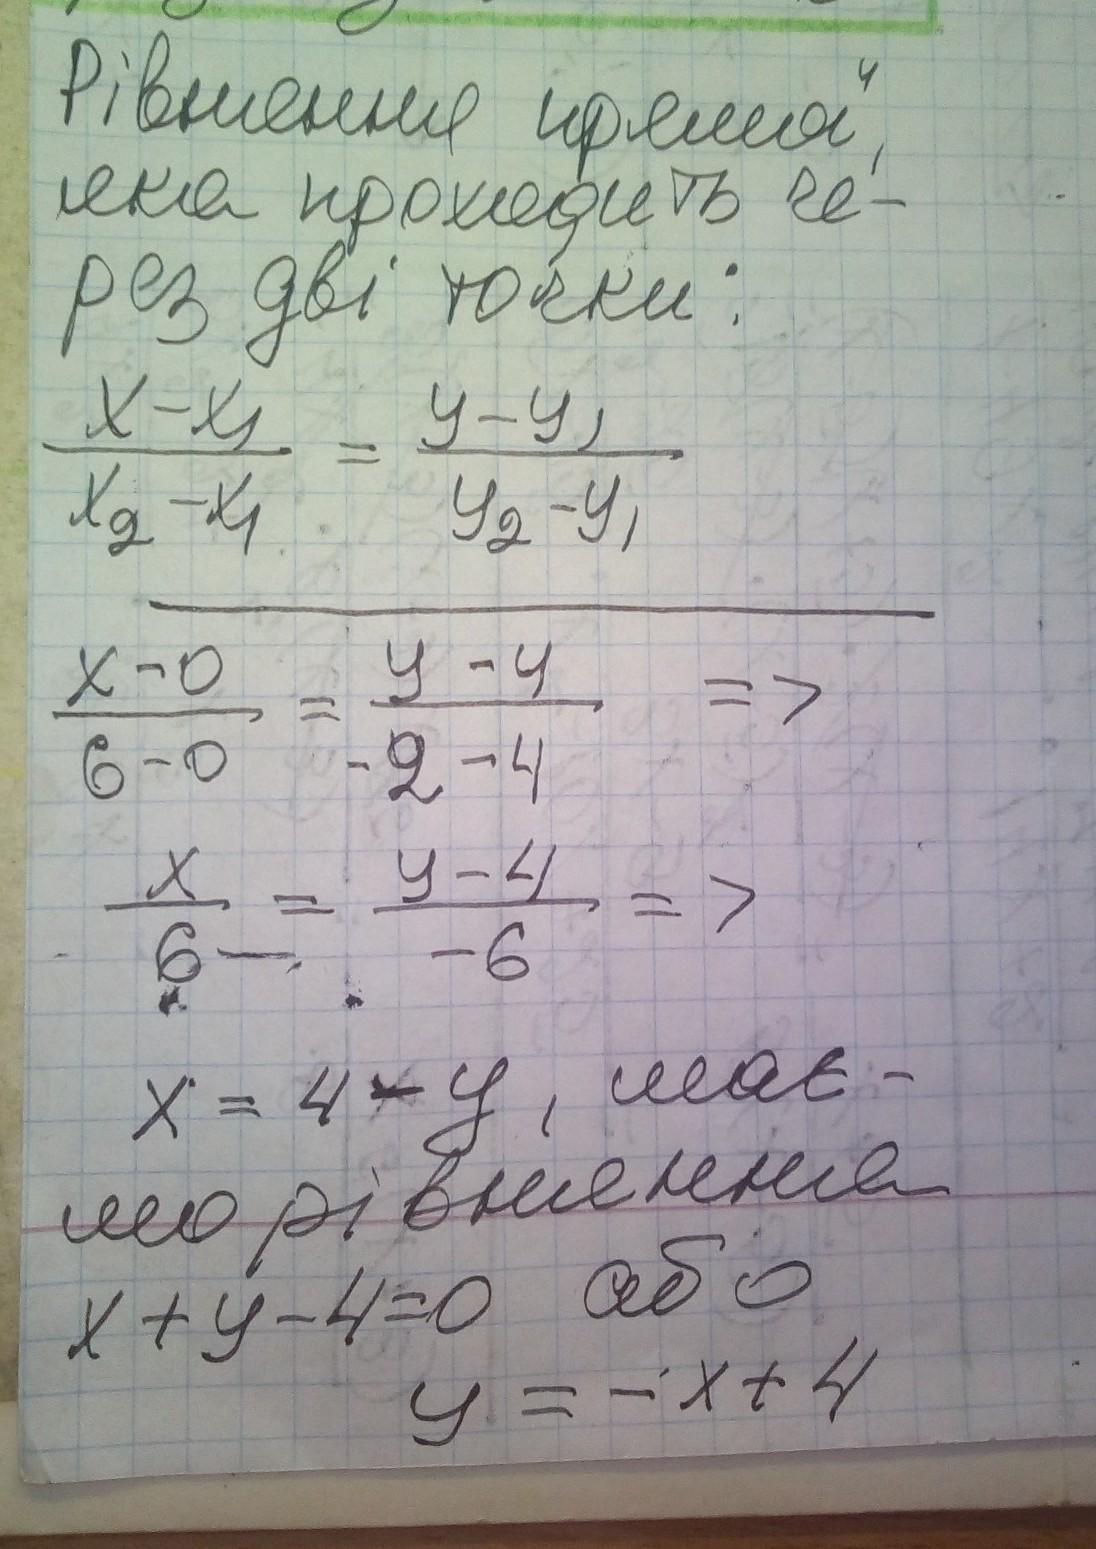 Рівняння прямої,
яка проходить че-
рез дві точки:
x-x₁/x₂-x₁ = y-y₁/y₂-y₁
x-0/6-0 = y-4/-2-4 =>
x/6 = y-4/-6 =>
x = 4-y, має-
мо рівняння
x+y-4=0 або
y = -x+4